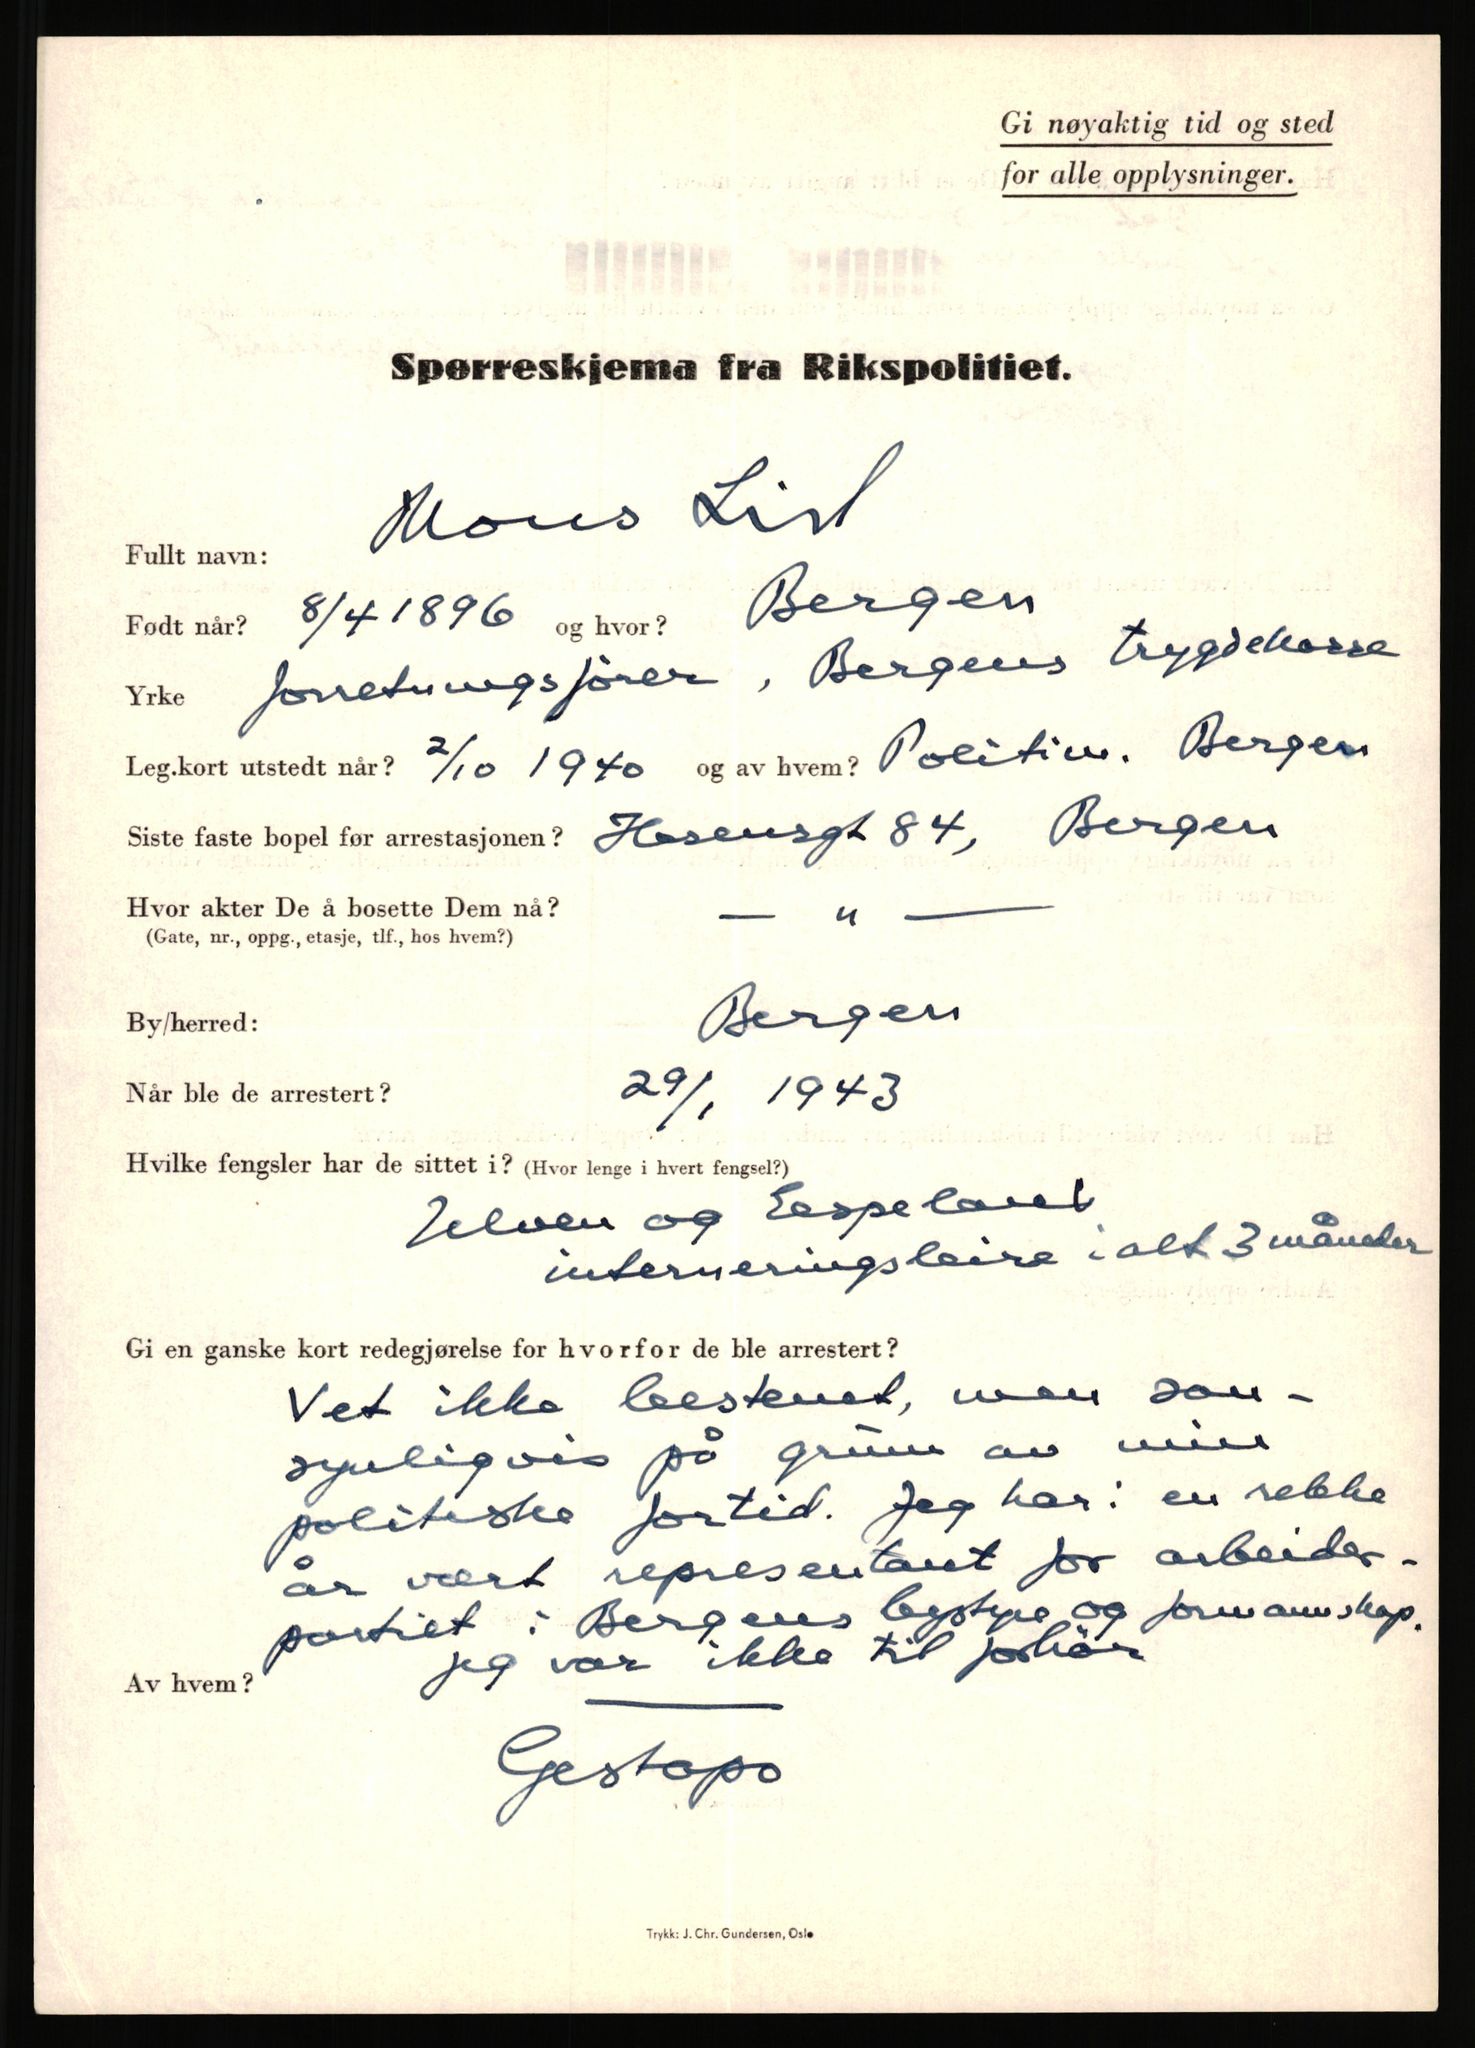 Gi nøyaktig tid og sted
for alle opplysninger.
Spørreskjema fra Rikspolitiet.
Fullt navn: Mons Lid
Født når? 8/4 1896 og hvor? Bergen
Yrke forretningsfører, Bergens trygdekasse
Leg.kort utstedt når? 2/10 1940 og av hvem? Politim. Bergen
Siste faste bopel før arrestasjonen? 84, Bergen
Hvor akter De å bosette Dem nå? — " —
(Gate, nr., oppg., etasje, tlf., hos hvem?)
By/herred: Bergen
Når ble de arrestert? 29/1 1943
Hvilke fengsler har de sittet i? (Hvor lenge i hvert fengsel?)
Ulven og Espeland
interneringsleire i alt 3 måneder
Gi en ganske kort redegjørelse for hvorfor de ble arrestert?
Vet ikke bestemt, men san-
synligvis på grunn av min
politiske fortid. Jeg har i en rekke
år vært representant for arbeider-
partiet i Bergens bystyre og formannskap.
Jeg var ikke til forhör
Av hvem?
Gestapo
Trykk: J. Chr. Gundersen, Oslo